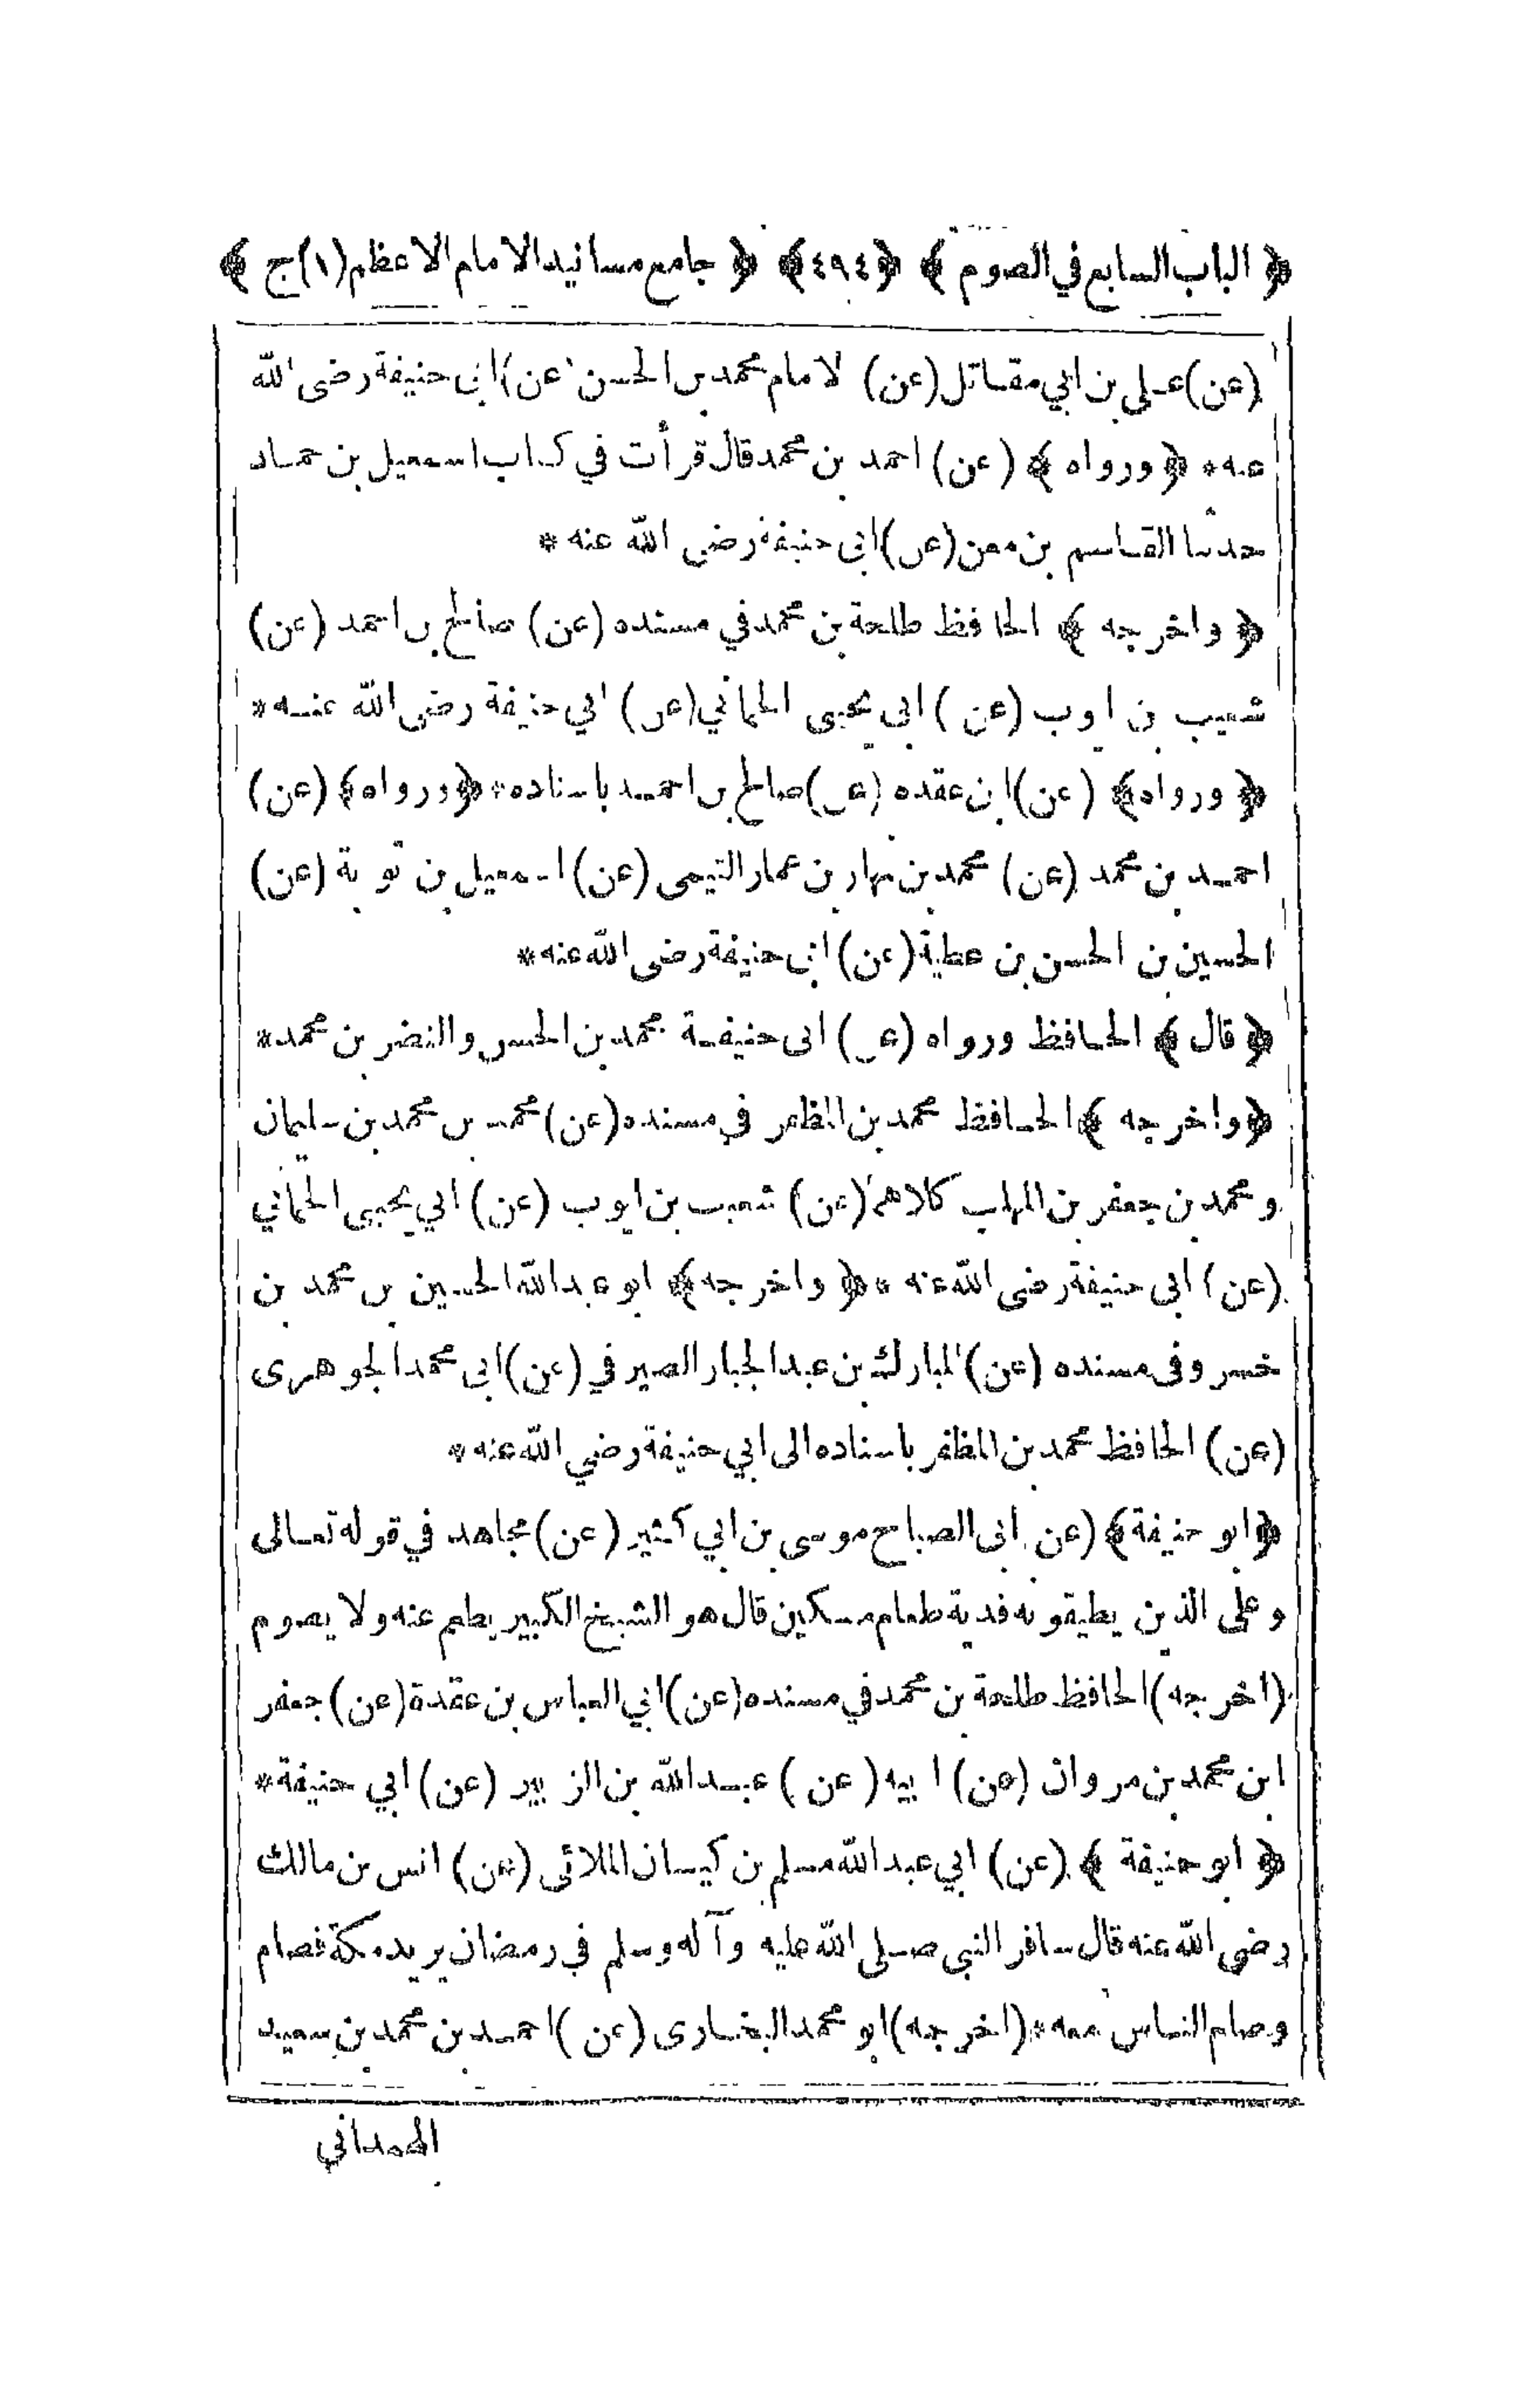 ﴿ الباب السابع في الصوم ﴾ ﴿٤٩٤﴾ ﴿ جامع مسانيد الامام الاعظم (١) ج ﴾
(عن) علي بن ابي مقاتل (عن) الامام محمد بن الحسن (عن) ابى حنيفة رضى الله
عنه * ﴿ ورواه ﴾ (عن) احمد بن محمد قال قرأت في كتاب اسمعيل بن حماد
حدثنا القاسم بن معن (عن) ابى حنيفة رضي الله عنه *
﴿ واخرجه ﴾ الحافظ طلحة بن محمد في مسنده (عن) صالح بن احمد (عن)
شعيب بن ايوب (عن) ابى يحيى الحماني (عن) ابي حنيفة رضى الله عنه *
﴿ ورواه ﴾ (عن) ابن عقده (عن) صالح بن احمد باسناده * ﴿ ورواه ﴾ (عن)
احمد بن محمد (عن) محمد بن بهار بن عمار التيمى (عن) اسمعيل بن توبة (عن)
الحسين بن الحسن بن عطية (عن) ابى حنيفة رضى الله عنه *
﴿ قال ﴾ الحافظ ورواه (عن) ابى حنيفة محمد بن الحسن والنضر بن محمد *
﴿ واخرجه ﴾ الحافظ محمد بن المظفر في مسنده (عن) محمد بن محمد بن سليمان
و محمد بن جعفر بن المهلب كلاهما (عن) شعيب بن ايوب (عن) ابي يحيى الحماني
(عن) ابى حنيفة رضى الله عنه * ﴿ واخرجه ﴾ ابو عبد الله الحسين بن محمد بن
خسرو فى مسنده (عن) المبارك بن عبد الجبار الصيرفي (عن) ابى محمد الجوهرى
(عن) الحافظ محمد بن المظفر باسناده الى ابي حنيفة رضي الله عنه *
﴿ ابو حنيفة ﴾ (عن) ابى الصباح موسى بن ابي كثير (عن) مجاهد في قوله تعالى
وعلى الذين يطيقونه فدية طعام مسكين قال هو الشيخ الكبير يطعم عنه ولا يصوم
(اخرجه) الحافظ طلحة بن محمد في مسنده (عن) ابي العباس بن عقدة (عن) جعفر
ابن محمد بن مروان (عن) ابيه (عن) عبد الله بن الزبير (عن) ابي حنيفة *
﴿ ابو حنيفة ﴾ (عن) ابي عبد الله مسلم بن كيسان الملائى (عن) انس بن مالك
رضى الله عنه قال سافر النبى صلى الله عليه وآله وسلم في رمضان يريد مكة فصام
وصام الناس معه * (اخرجه) ابو محمد البخارى (عن) احمد بن محمد بن سعيد
الهمداني